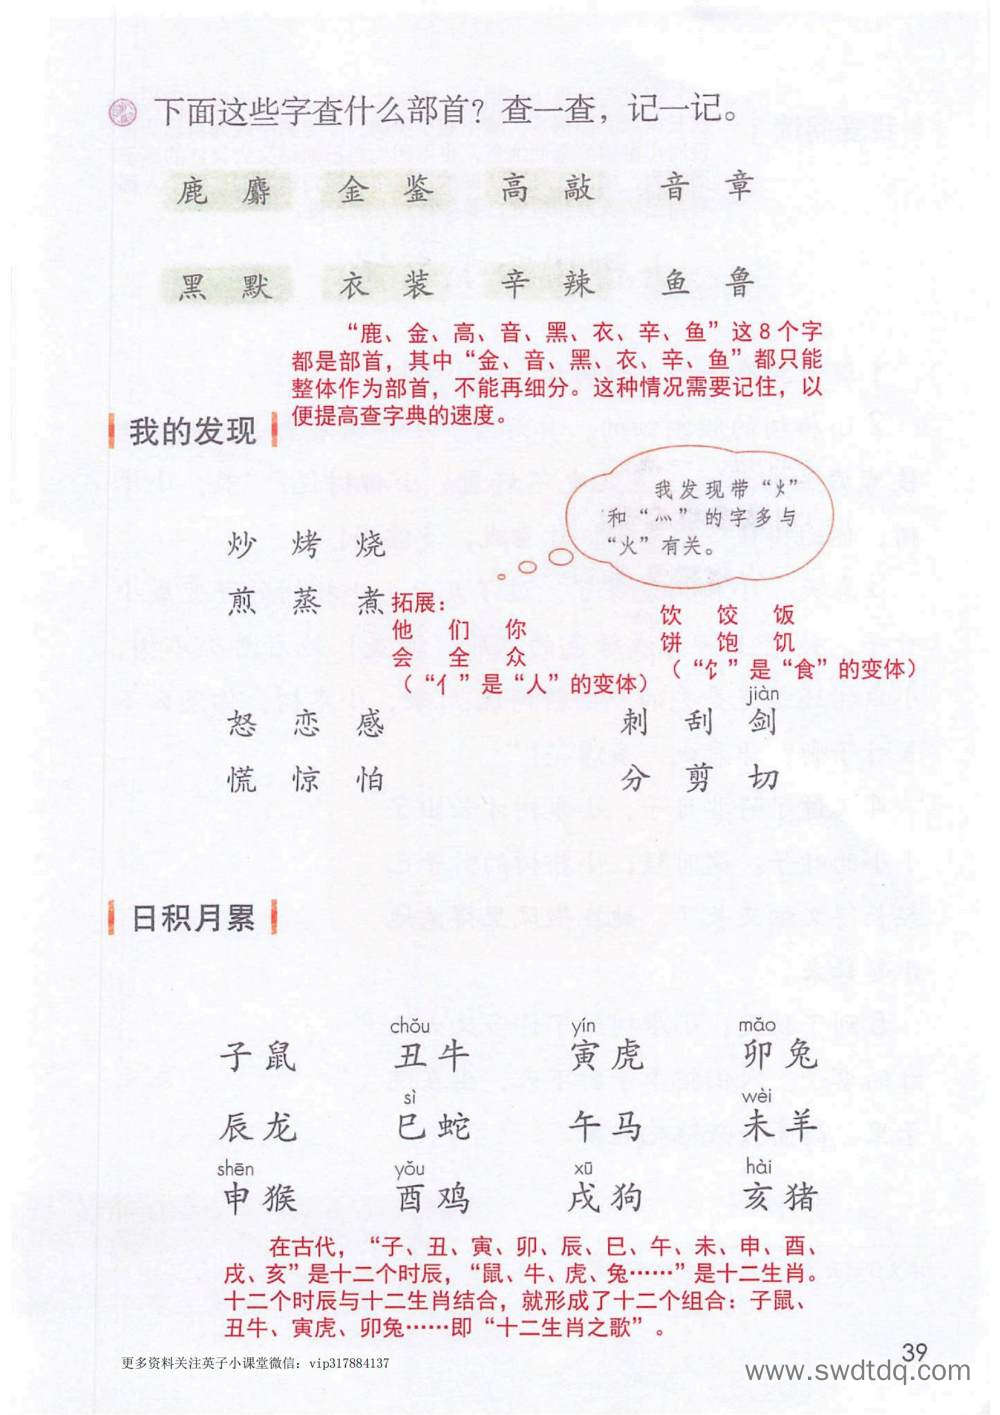 下面这些字查什么部首？查一查，记一记。
鹿 麝 金 鉴 高 敲 音 章
黑 默 衣 装 辛 辣 鱼 鲁
“鹿、金、高、音、黑、衣、辛、鱼”这8个字
都是部首，其中“金、音、黑、衣、辛、鱼”都只能
整体作为部首，不能再细分。这种情况需要记住，以
便提高查字典的速度。
我的发现
我发现带“火”
和“灬”的字多与
“火”有关。
炒 烤 烧
煎 蒸 煮
拓展：
他 们 你
会 全 众
（“亻”是“人”的变体）
饮 饺 饭
饼 饱 饥
（“饣”是“食”的变体）
jiàn
怒 恋 感 刺 刮 剑
慌 惊 怕 分 剪 切
日积月累
chǒu yín mǎo
子鼠 丑牛 寅虎 卯兔
sì wèi
辰龙 巳蛇 午马 未羊
shēn yǒu xū hài
申猴 酉鸡 戌狗 亥猪
在古代，“子、丑、寅、卯、辰、巳、午、未、申、酉、
戌、亥”是十二个时辰，“鼠、牛、虎、兔……”是十二生肖。
十二个时辰与十二生肖结合，就形成了十二个组合：子鼠、
丑牛、寅虎、卯兔……即“十二生肖之歌”。
更多资料关注英子小课堂微信：vip317884137
39
www.swdtdq.com